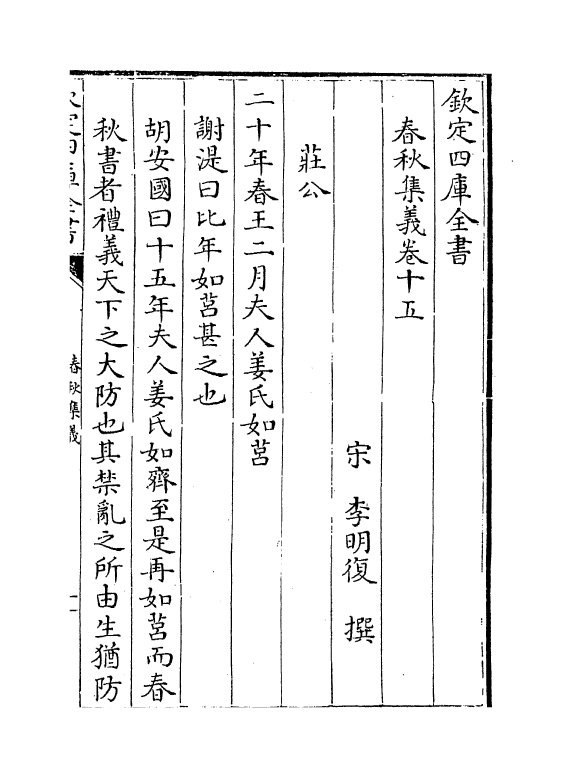 欽定四庫全書
春秋集義卷十五
宋 李明復 撰
莊公
二十年春王二月夫人姜氏如莒
謝湜曰比年如莒甚之也
胡安國曰十五年夫人姜氏如齊至是再如莒而春
秋書者禮義天下之大防也其禁亂之所由生猶防
欽定四庫全書
春秋集義